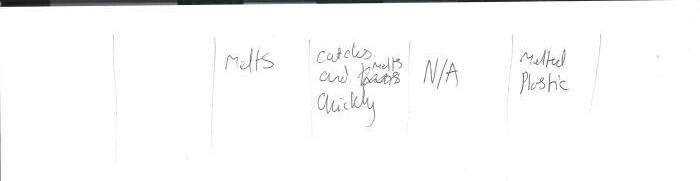 Melts
catches
and melts
Quickly
N/A
Melted
Plastic